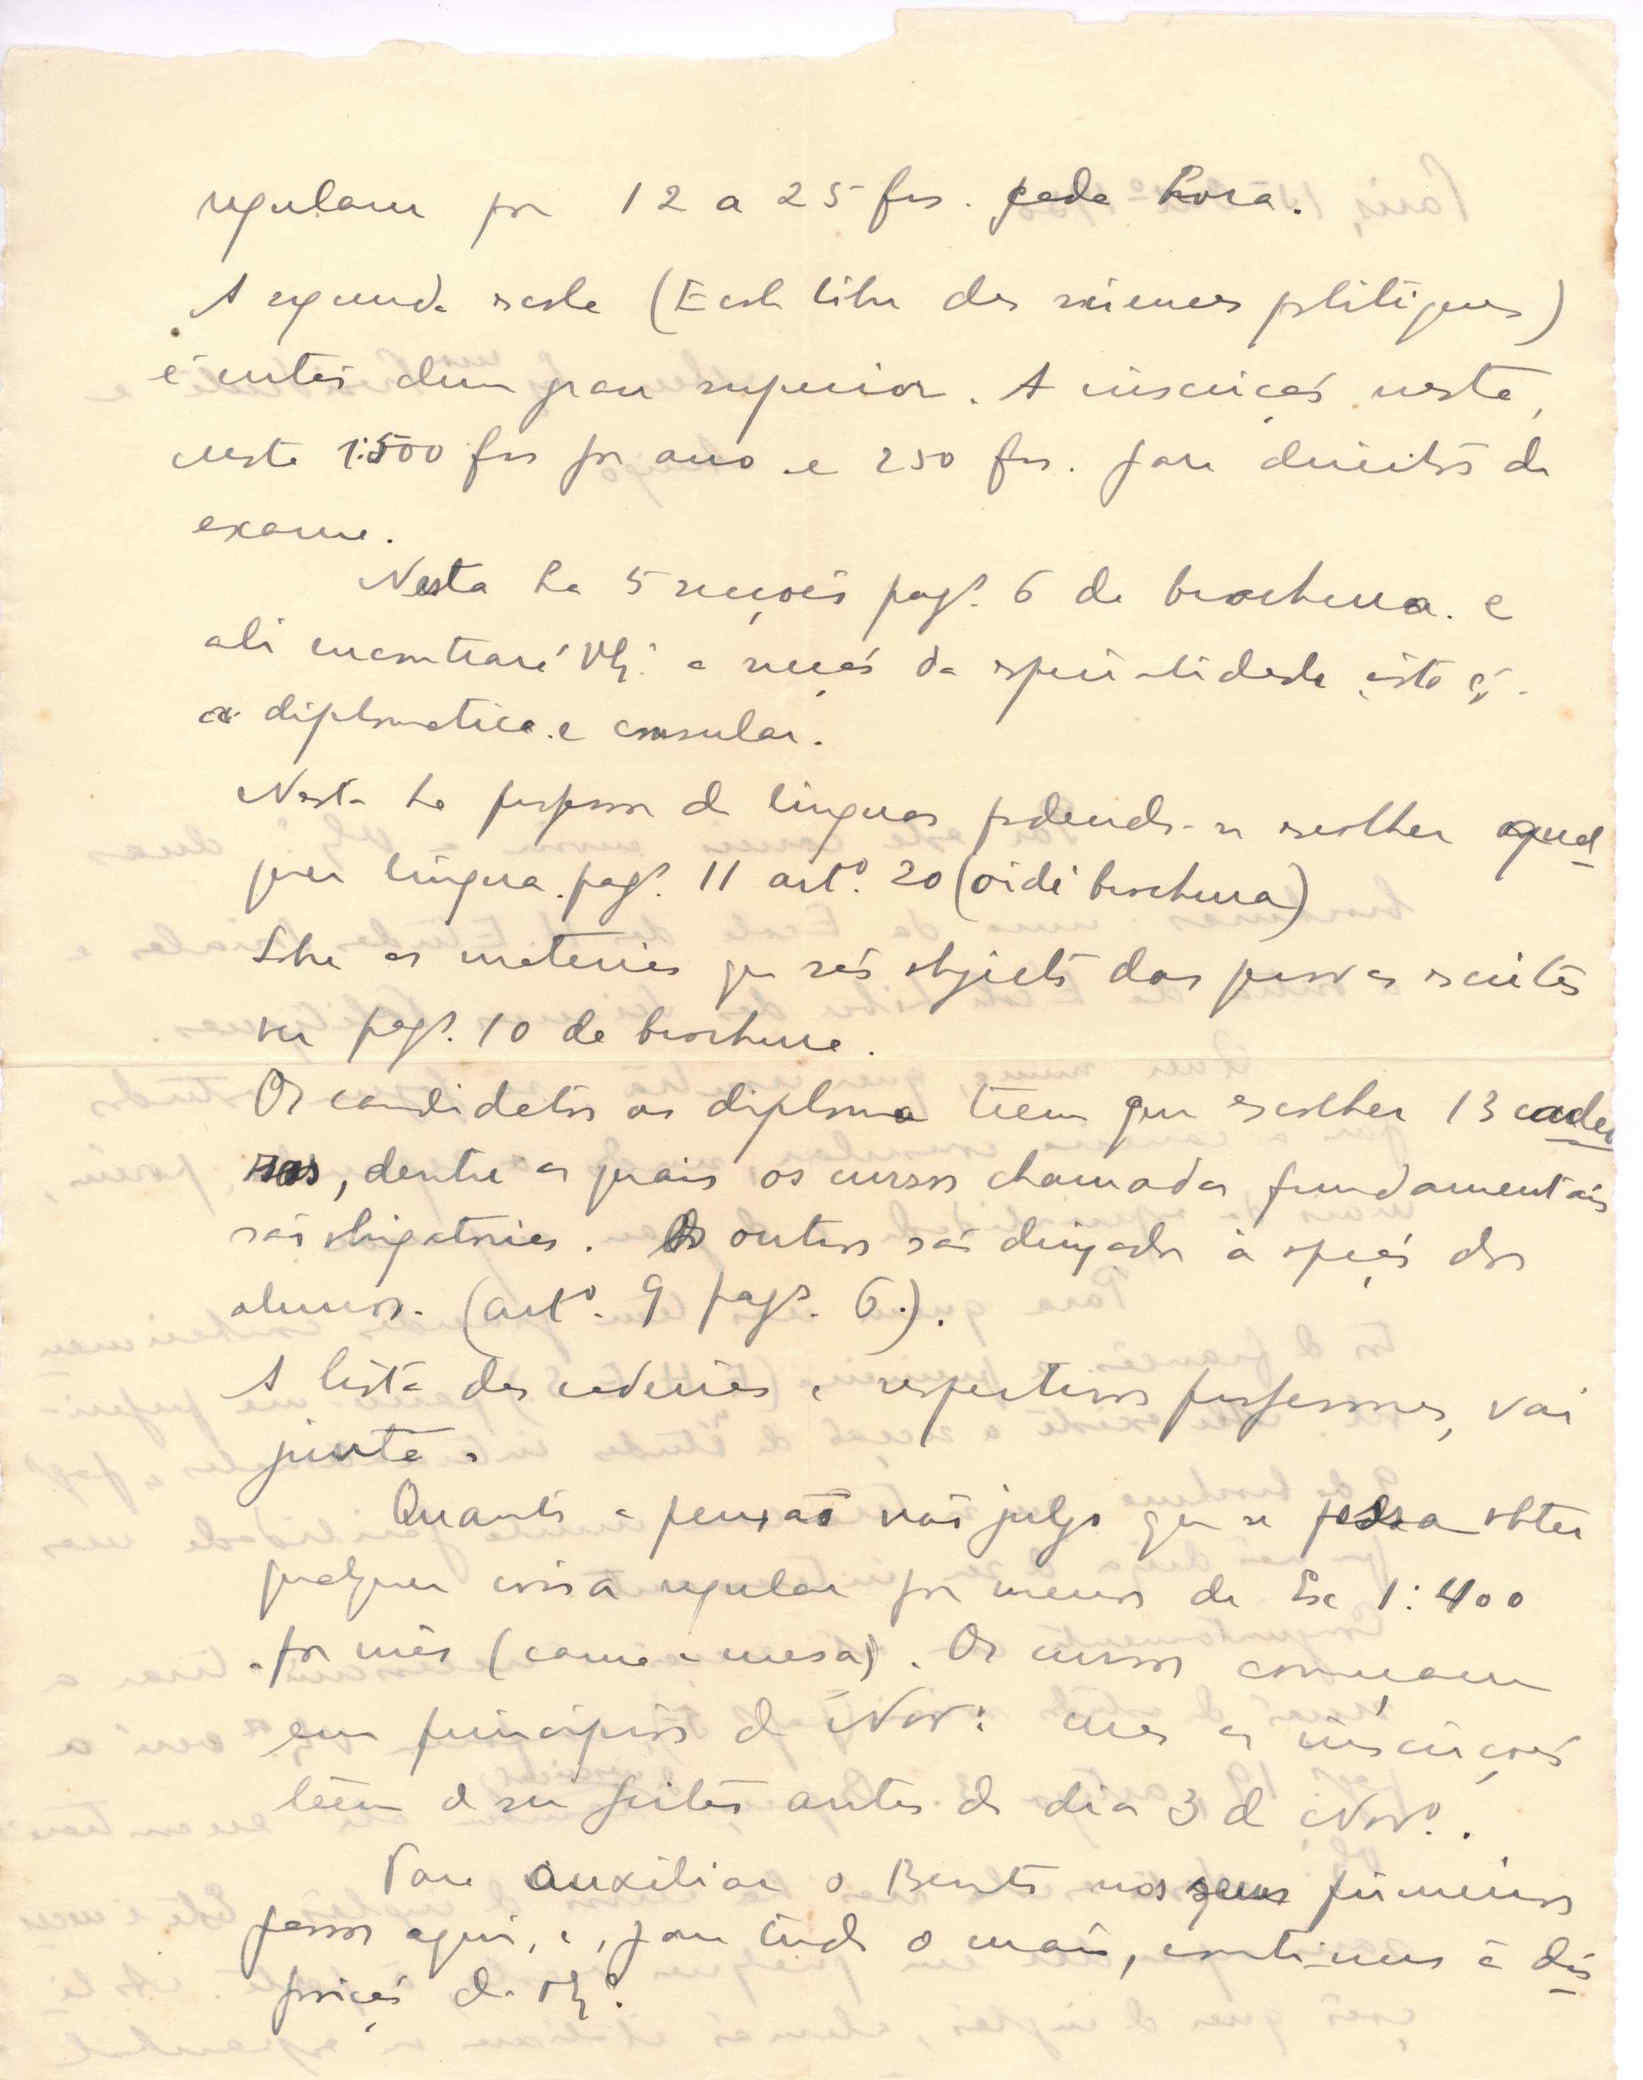 regulam por 12 a 25 frs. cada hora.
A segunda escola (Ecole libre des sciences politiques)
é dum grau superior. A inscrição nesta,
custa 1:500 frs por ano e 250 frs. para direitos de
exame.
Nesta ha 5 secções pagª. 6 da brochura. e
ali encontrará VExª. a secção da especialidade isto é
a diplomatica e consular.
Nesta ha professor de linguas podendo-se escolher qual
quer lingua. pagª. 11 artº. 20 (vidé brochura)
Sobre as materias que são objecto das provas escritas
ver pagª. 10 da brochura.
Os candidatos ao diploma teem que escolher 13 cadei
ras, dentre as quais os cursos chamados fundamentais
são obrigatorios. Os outros são à opção dos
alunos. (artº. 9 pagª. 6.).
A lista das cadeiras e respectivos professores, vai
junta.
Quanto a pensão não julgo que se possa obter
qualquer coisa regular por menos de Esc 1:400
por mês (cama e mesa). Os cursos começam
em principios de Novº. mas as inscrições
teem de ser feitas antes do dia 3 de Novº..
Para auxiliar o Bento nos seus primeiros
passos aqui, e, para tudo o mais, continuo à dis
posição de VExª.